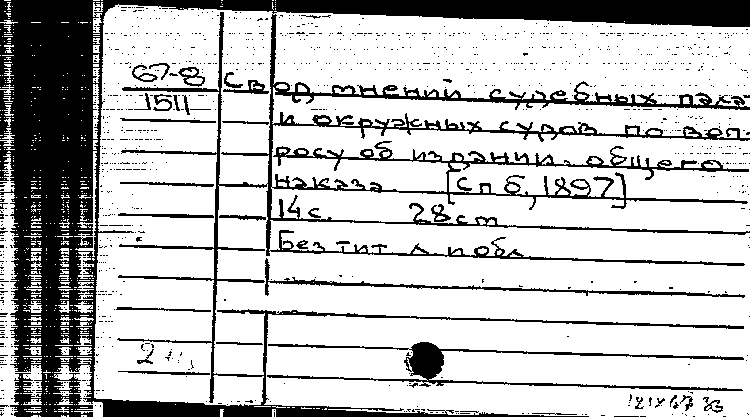 67-8
1511
Свод мнений судебных пала
и окружных судов по воп-
росу об издании общего
наказа [Спб, 1897]
14с. 28см
Без тит л и обл
2